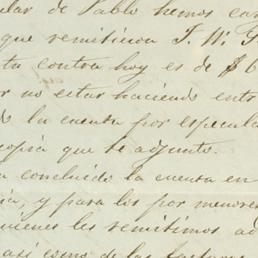 ular de Pablo hemos car
que remitieron J. W.
ta contra hoy es de $6
r no estar haciendo entr
s la cuenta por especula
copia que te adjunto.
a concluido la cuenta en
ia, y para los por menores
quienes les remitimos ad
así como de las facturas